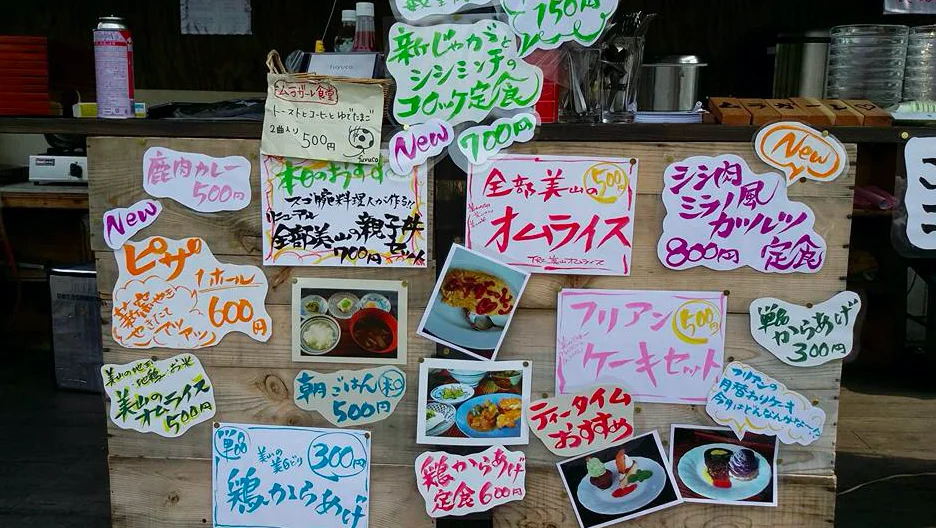 750円
新じゃがと
シシミンチの
コロッケ定食
New
700円
ムラガール食堂
トーストとコーヒーとゆでたまご
500円
yuyuco
鹿肉カレー
500円
New
本日のおすすめ
スゴ腕料理人が作る!!
全部美山の親子丼
700円
全部美山の
500円
オムライス
シシ肉
ミラノ風
カツレツ
800円
定食
New
ピザ
1ホール
600円
薪窯やき
アツアツ
フリアン
500円
ケーキセット
単品
からあげ
300円
美山の
オムライス
500円
朝ごはん
和
500円
ティータイム
おすすめ
フリアンの
月替わりケーキ
今月はどんなんかな〜
単品
美山の
300円
鶏からあげ
鶏からあげ
定食600円